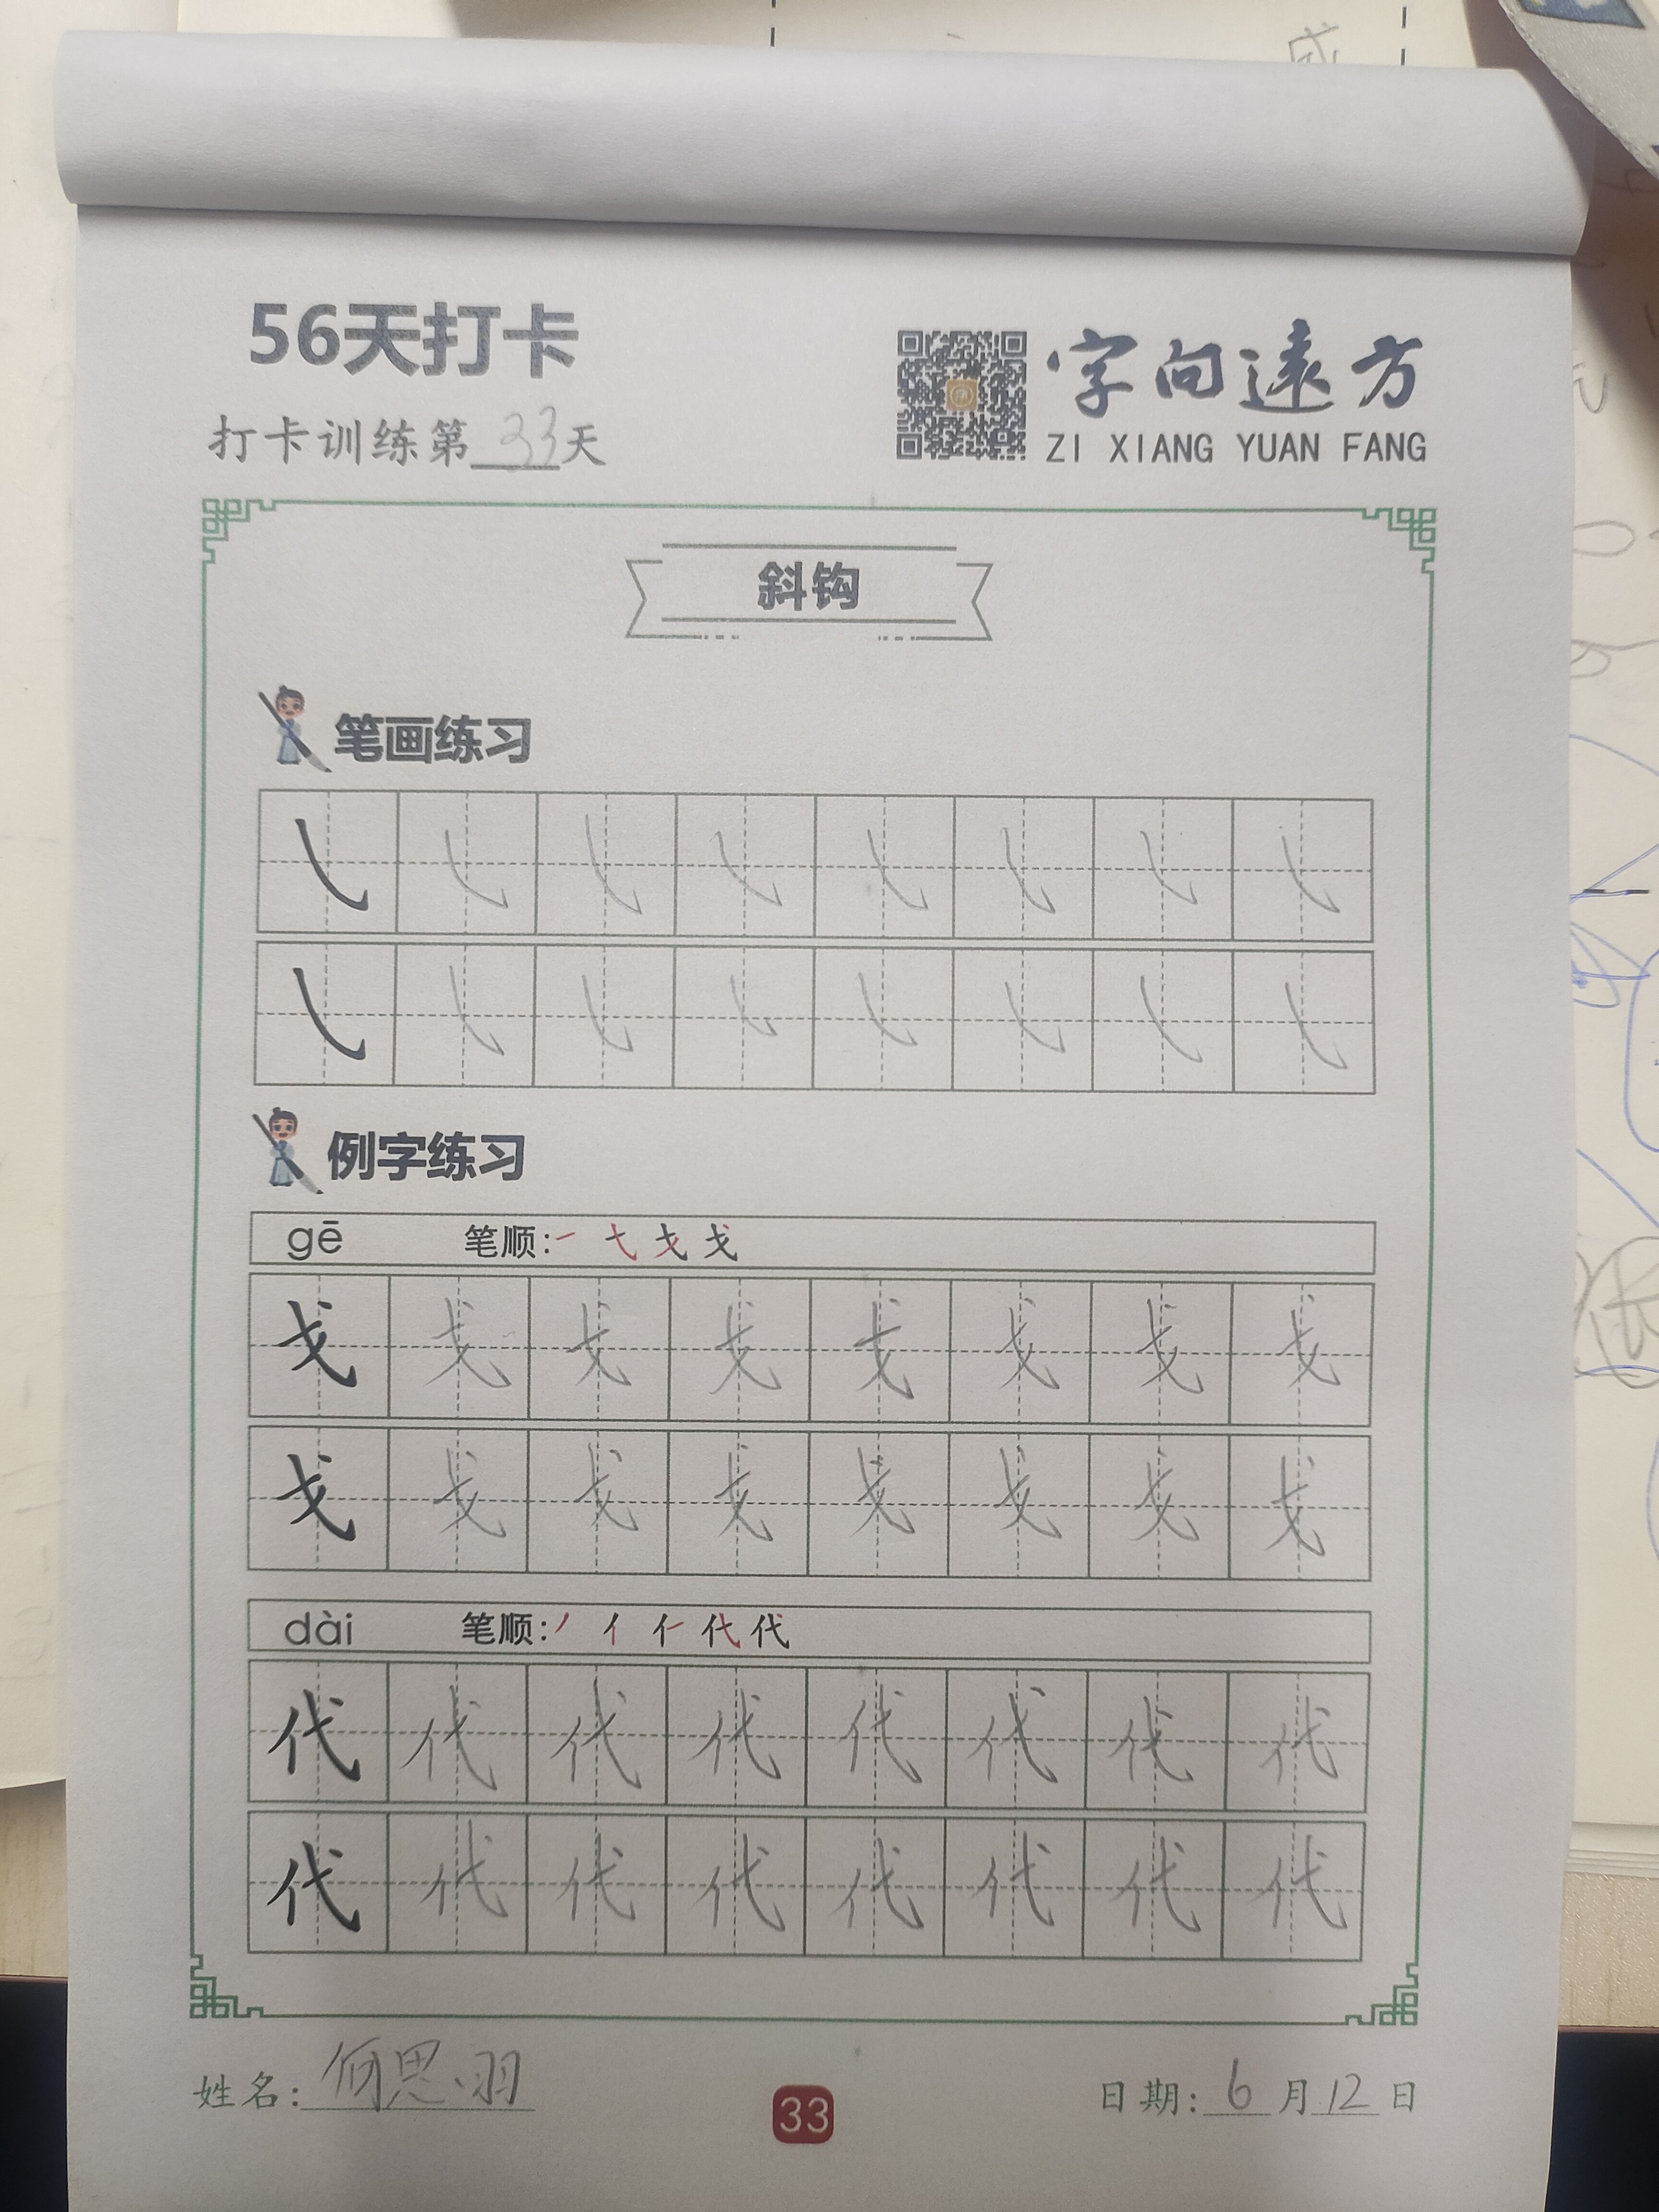 成
56天打卡
字向远方
打卡训练第33天
ZI XIANG YUAN FANG
斜钩
笔画练习
㇂ ㇂ ㇂ ㇂ ㇂ ㇂ ㇂ ㇂
㇂ ㇂ ㇂ ㇂ ㇂ ㇂ ㇂ ㇂
例字练习
gē 笔顺: 一 弋 戈 戈
戈 戈 戈 戈 戈 戈 戈 戈
戈 戈 戈 戈 戈 戈 戈 戈
dài 笔顺: 丿 亻 仁 代 代
代 代 代 代 代 代 代 代
代 代 代 代 代 代 代 代
姓名: 何思羽
33
日期: 6月12日